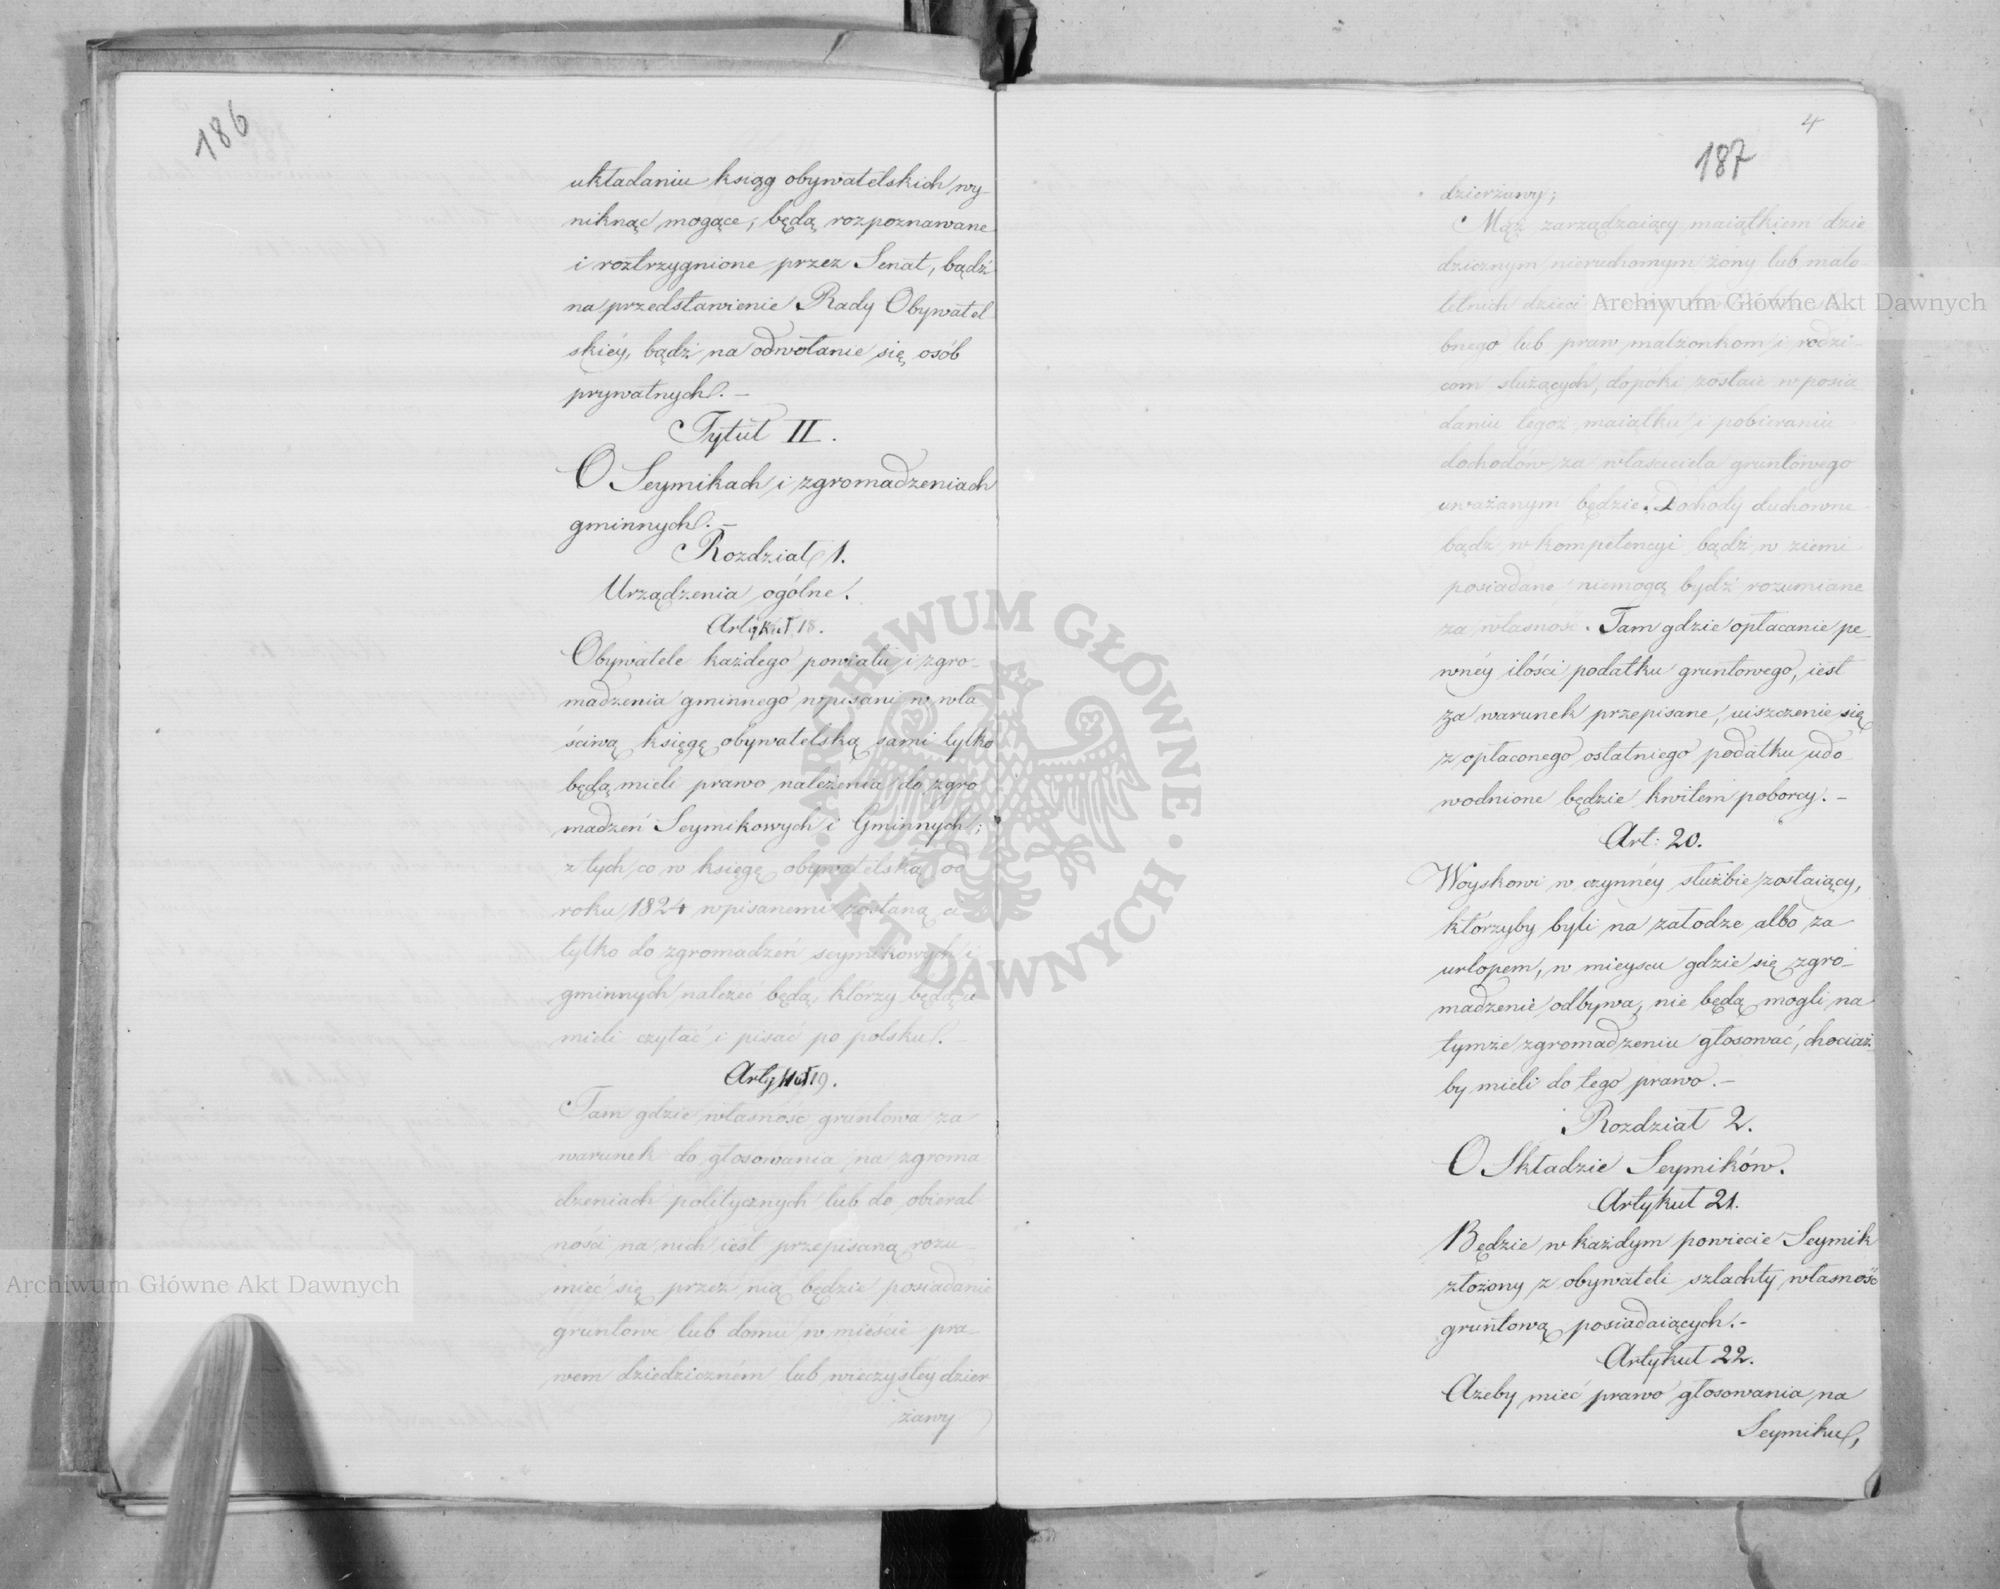 186
układaniu ksiąg obywatelskich wy-
niknąć mogące, będą rozpoznawane
i roztrzygnione przez Senat, bądź
na przedstawienie Rady Obywatel
skiéy, bądź na odwołanie się osób
prywatnych. –
Tytuł II.
O Seymikach i zgromadzeniach
gminnych. –
Rozdział 1.
Urządzenia ogólne.
Artykuł 18.
Obywatele każdego powiatu i zgro-
madzenia gminnego wpisani w wła
ściwą księgę obywatelską sami tylko
będą mieli prawo należenia do zgro
madzeń Seymikowych i Gminnych;
z tych co w księgę obywatelską od
roku 1824 wpisanemi zostaną ci
tylko do zgromadzeń seymikowych i
gminnych należeć będą, którzy będą u
mieli czytać i pisać po polsku. –
Artykuł 19.
Tam gdzie własność gruntowa za
warunek do głosowania na zgroma
dzeniach politycznych lub do obieral
ności na nich iest przepisaną rozu-
mieć się przez nią będzie posiadanie
gruntowe lub domu w mieście pra-
wem dziedziczném lub wieczystey dzier
żawy
4
187
dzierżawy;
Mąż zarządzaiący maiątkiem dzie
dzicznym nieruchomym żony lub mało-
letnich dzieci
bnego lub praw małżonkom i rodzi-
com służących, dopóki zostaie w posia
daniu tegoż maiątku i pobieraniu
dochodów, za właściciela gruntowego
uważanym będzie. Dochody duchowne
bądź w kompetencyi bądź w ziemi
posiadane niemogą bydź rozumiane
za własność. Tam gdzie opłacanie pe-
wnéy ilości podatku gruntowego, iest
za warunek przepisane, uiszczenie się
z opłaconego ostatniego podatku udo
wodnione będzie kwitem poborcy. –
Art: 20.
Woyskowi w czynnéy służbie zostaiący,
którzyby byli na załodze albo za
urlopem, w mieyscu gdzie się zgro-
madzenie odbywa, nie będą mogli na
tymże zgromadzeniu głosować, chociaż-
by mieli do tego prawo. –
Rozdział 2.
O Składzie Seymików.
Artykuł 21.
Będzie w każdym powiecie Seymik
złożony z obywateli szlachty własność
gruntową posiadaiących. –
Artykuł 22.
Ażeby mieć prawo głosowania na
Seymiku,
Archiwum Główne Akt Dawnych
Archiwum Główne Akt Dawnych
ARCHIWUM GŁÓWNE · AKT DAWNYCH ·